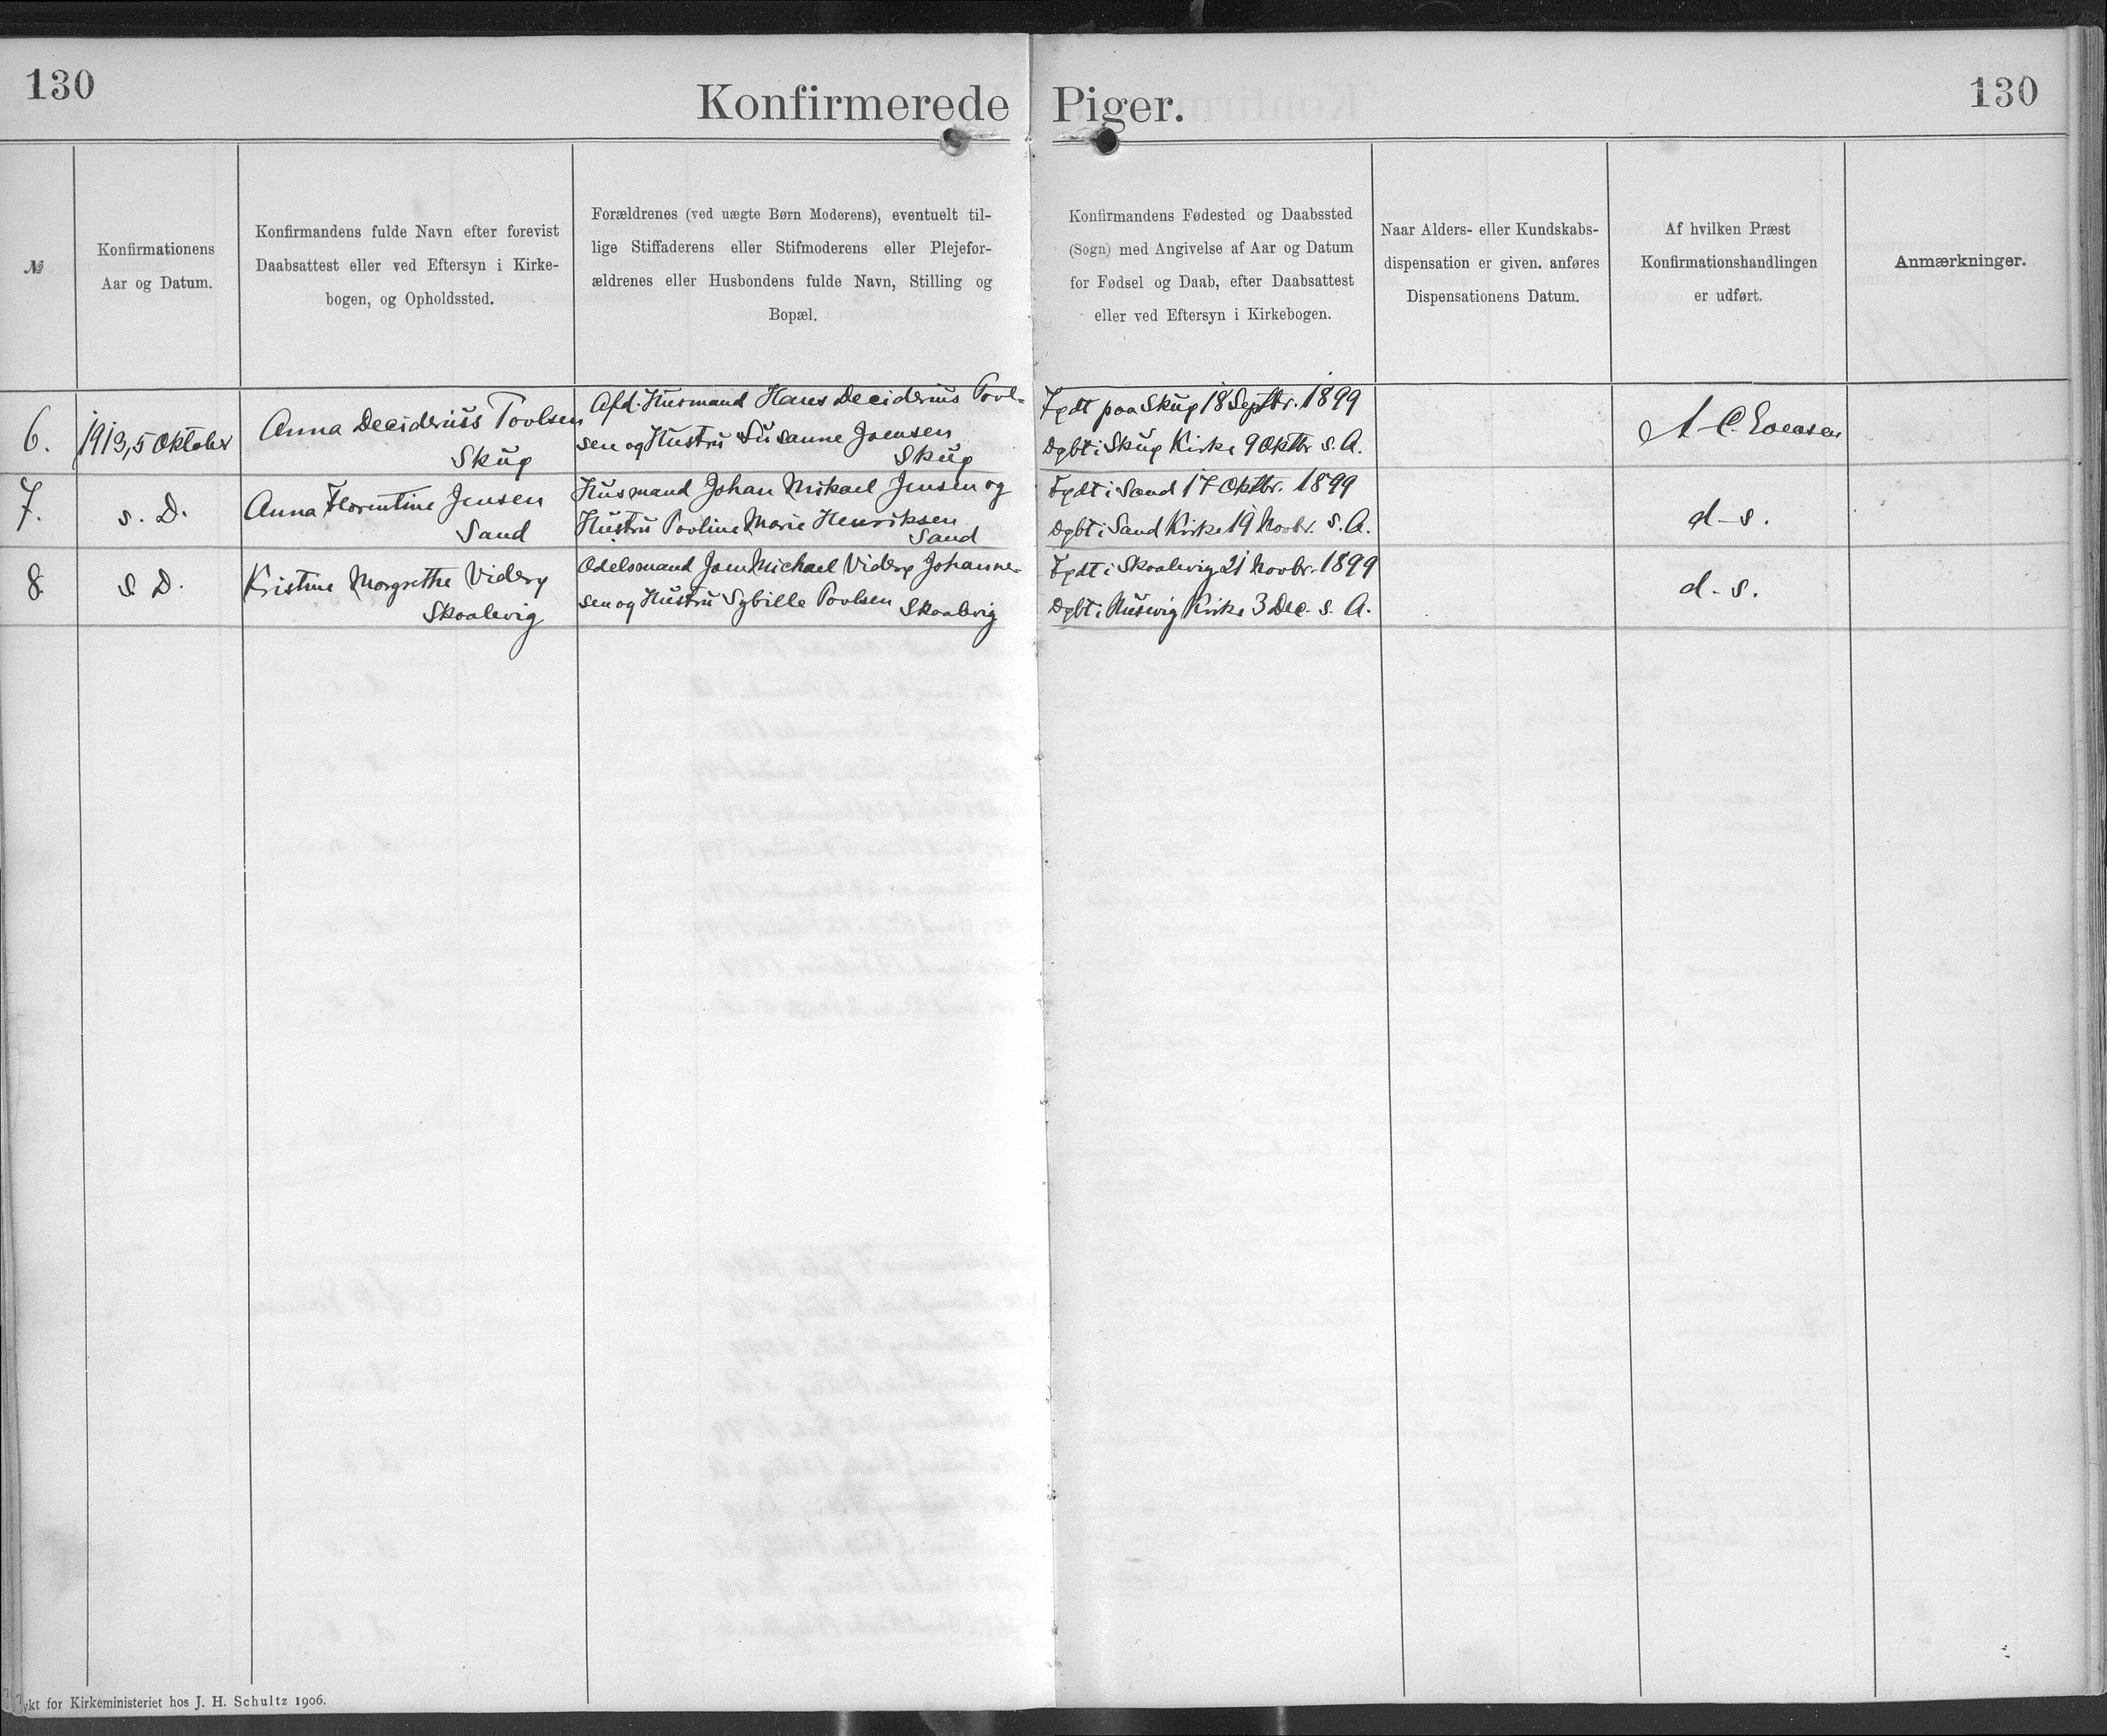 130
Konfirmerede Piger.
130
№
Konfirmationens
Aar og Datum.
Konfirmandens fulde Navn efter forevist
Daabsattest eller ved Eftersyn i Kirke-
bogen, og Opholdssted.
Forældrenes (ved uægte Børn Moderens), eventuelt til-
lige Stiffaderens eller Stifmoderens eller Plejefor-
ældrenes eller Husbondens fulde Navn, Stilling og
Bopæl.
Konfirmandens Fødested og Daabssted
(Sogn) med Angivelse af Aar og Datum
for Fødsel og Daab, efter Daabsattest
eller ved Eftersyn i Kirkebogen.
Naar Alders- eller Kundskabs-
dispensation er given. anføres
Dispensationens Datum.
Af hvilken Præst
Konfirmationshandlingen
er udført.
Anmærkninger.
6.
1913, 5 Oktober
Anna Deciderius Poulsen
Skuø
Afd. Husmand Hans Deciderius Poul-
sen og Hustru Susanne Joensen
Skuø
Født paa Skuø 18 Septbr. 1899
Døbt i Skuø Kirke 9 Oktbr s. A.
A. C. Evensen
7.
s. D.
Anna Florentine Jensen
Sand
Husmand Johan Mikael Jensen og
Hustru Pouline Marie Henriksen
Sand
Født i Sand 17 Oktbr. 1899
Døbt i Sand Kirke 19 Novbr. s. A.
d - s.
8
s D.
Kristine Margrethe Viderø
Skaalevig
Odelsmand Joen Michael Viderø Johanne-
sen og Hustru Sybille Poulsen
Skaalevig
Født i Skaalevig 21 Novbr. 1899
Døbt i Husevig Kirke 3 Dec. s. A.
d - s.
ykt for Kirkeministeriet hos J. H. Schultz 1906.